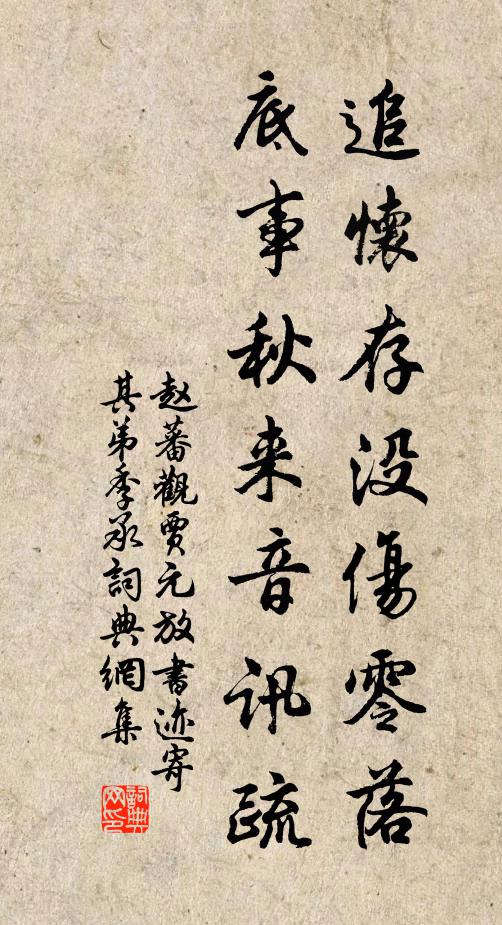 追懷存没傷零落
底事秋来音讯疏
赵蕃觀賈元放書迹寄
其弟季承詞典網集
詞典网印